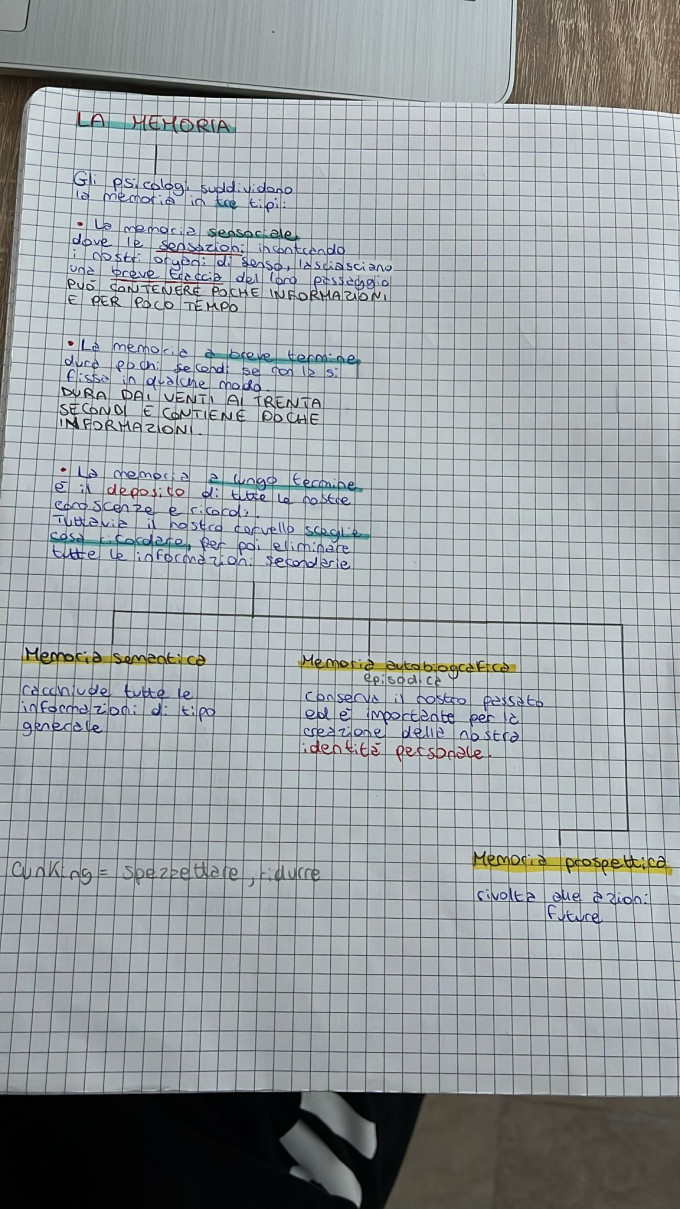 LA MEMORIA
Gli psicologi suddividono
la memoria in tre tipi:
• La memoria sensoriale
dove le sensazioni incontrando
i nostri organi di senso, lasciasciano
una breve traccia del loro passaggio
PUÒ CONTENERE POCHE INFORMAZIONI
E PER POCO TEMPO
• La memoria a breve termine
dura pochi secondi se non la si
fissa in qualche modo.
DURA DAI VENTI AI TRENTA
SECONDI E CONTIENE POCHE
INFORMAZIONI.
• La memoria a lungo termine
è il deposito di tutte le nostre
conoscenze e ricordi.
Tuttavia il nostro cervello sceglie
cosa ricordare, per poi eliminare
tutte le informazioni secondarie
Memoria semantica
racchiude tutte le
informazioni di tipo
generale
Memoria autobiografica
episodica
conserva il nostro passato
ed è importante per la
creazione della nostra
identità personale.
Memoria prospettica
rivolta alle azioni
future
Cunking = spezzettare, ridurre